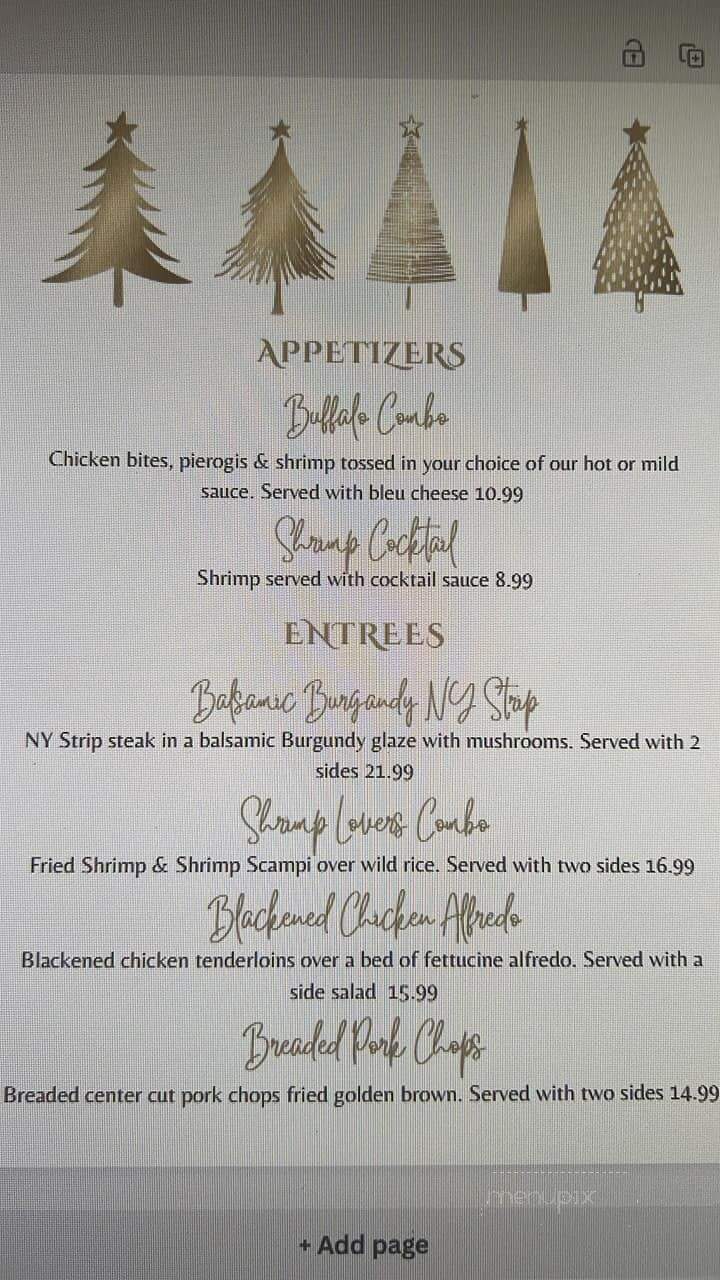 APPETIZERS
Buffalo Combo
Chicken bites, pierogis & shrimp tossed in your choice of our hot or mild
sauce. Served with bleu cheese 10.99
Shrimp Cocktail
Shrimp served with cocktail sauce 8.99
ENTREES
Balsamic Burgandy NY Strip
NY Strip steak in a balsamic Burgundy glaze with mushrooms. Served with 2
sides 21.99
Shrimp Lovers Combo
Fried Shrimp & Shrimp Scampi over wild rice. Served with two sides 16.99
Blackened Chicken Alfredo
Blackened chicken tenderloins over a bed of fettucine alfredo. Served with a
side salad 15.99
Breaded Pork Chops
Breaded center cut pork chops fried golden brown. Served with two sides 14.99
menupix
+ Add page